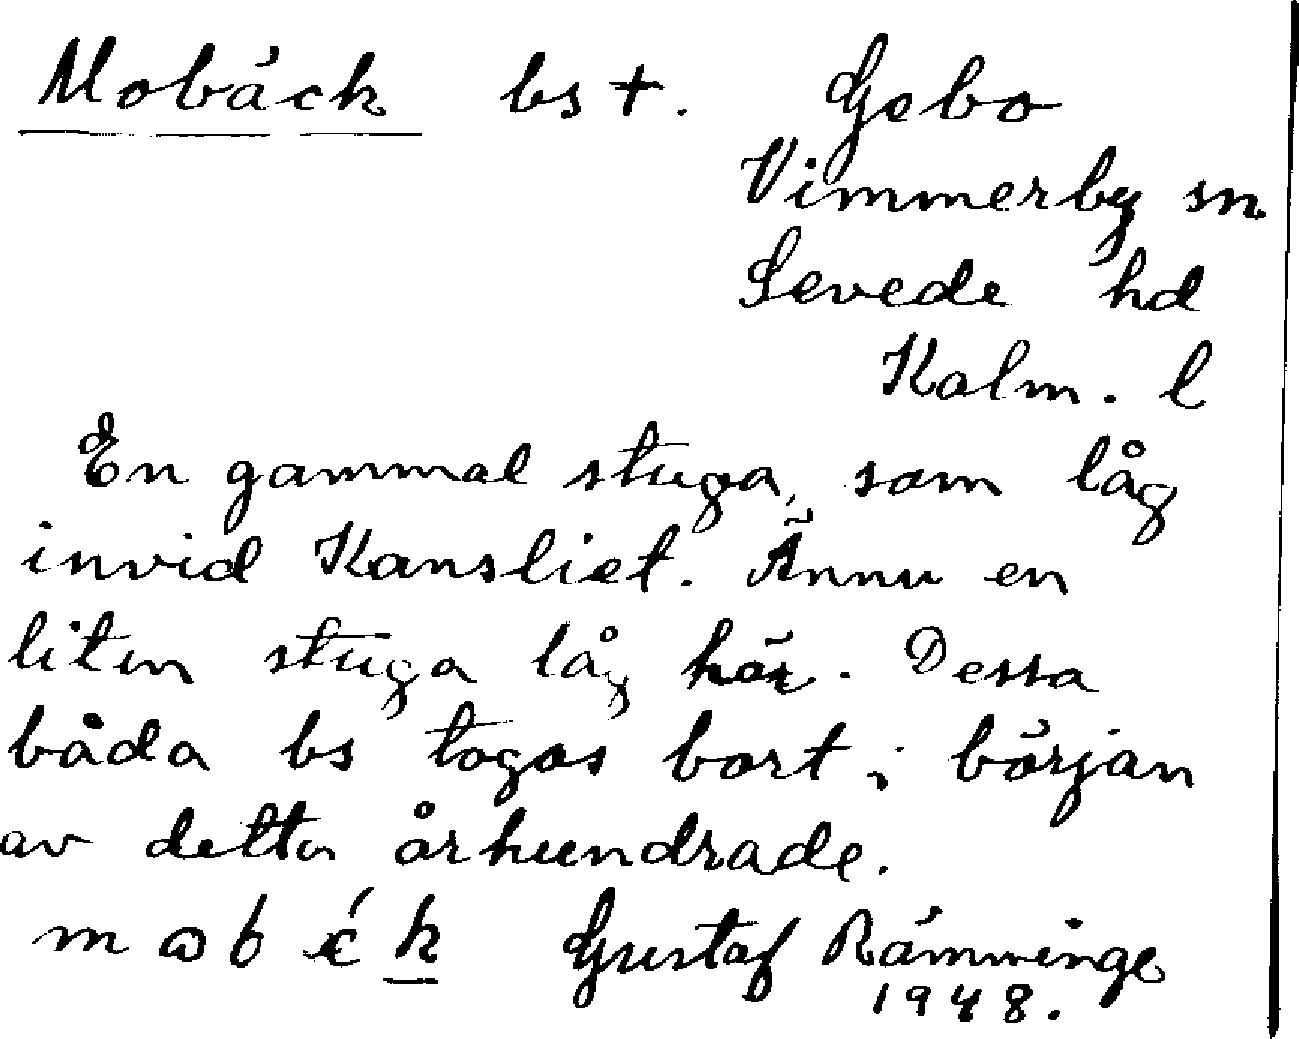 Mobäck bs +. Gebo
Vimmerby sn.
Sevede hd
Kalm. l
En gammal stuga, som låg
invid Kansliet. Ännu en
liten stuga låg här. Dessa
båda bs togos bort i början
av detta århundrade.
Gustaf Rämminge
1948.